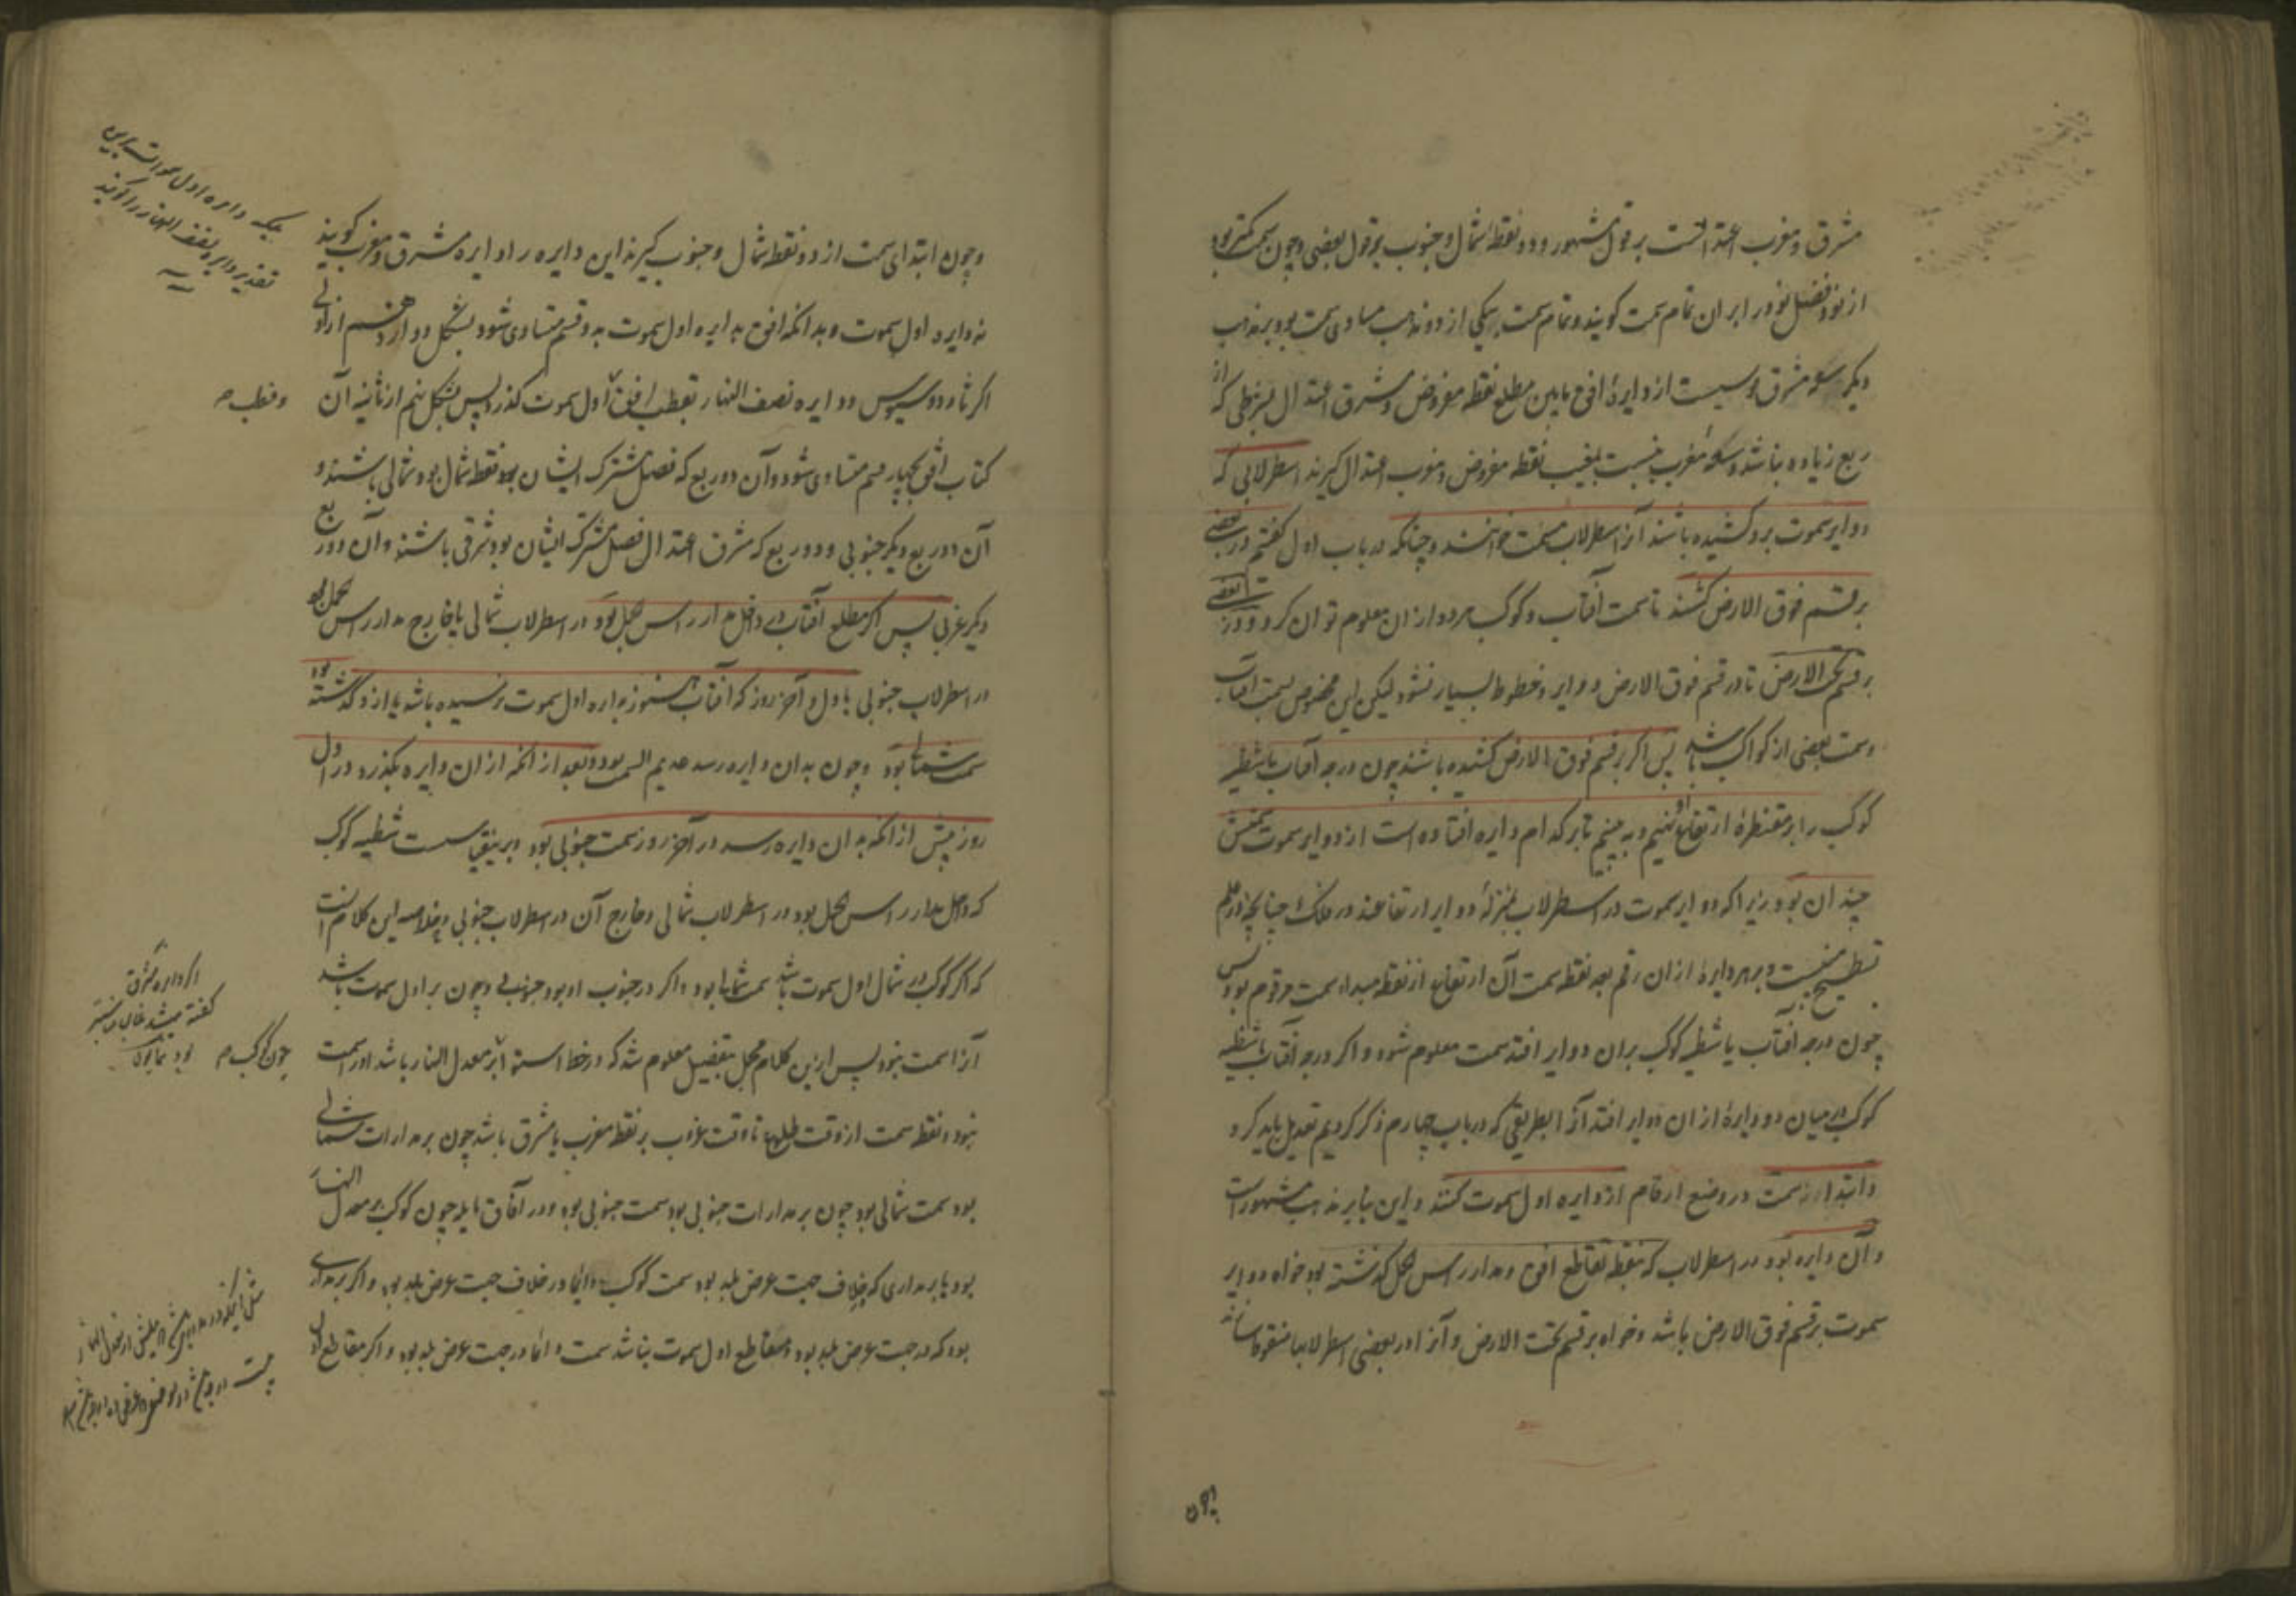 مشرق و مغرب اعتدالست بر قول مشهور و دو نقطه شمال و جنوب بر قول بعضی و چون سمت کمتر بود
از نود فضل نود را بر ان تمام سمت کویند و تمام سمت بر یکی از دو مذهب مساوی سمت بود بر مذهب
دیکر سعه مشرق قوسیست از دایرهٔ افق مابین مطلع نقطه مفروض و مشرق اعتدال بشرطی که از
ربع زیاده نباشد و سعهٔ مغرب بنسبت بمغیب نقطه مفروض و مغرب اعتدال کیرند اسطرلابی که
دوایر سموت برو کشیده باشند آنرا اسطرلاب مسمت خوانند و چنانکه در باب اول کفتم در بعضی
بر قسم فوق الارض کشند تا سمت آفتاب و کوکب هر دو ازان معلوم توان کرد و در بعضی
بر قسم تحت الارض تا در قسم فوق الارض دوایر و خطوط بسیار نشود لیکن این مخصوص بسمت آفتاب
و سمت بعضی از کواکب باشد پس اکر بر قسم فوق الارض کشیده باشند چون درجه آفتاب یا شظیه
کوکب را بر مقنطرهٔ ارتفاع او نهیم و به بینیم تا بر کدام دایره افتاده است از دوایر سموت سمتش
چندان بود زیرا که دوایر سموت در اسطرلاب بمنزلهٔ دوایر ارتفاعند در فلک چنانچه در علم
تسطیح مبینست و بر هر دایرهٔ ازان رقم بعد نقطه سمت آن ارتفاع از نقطه مبداء سمت مرقوم بود پس
چون درجه آفتاب یا شظیه کوکب بران دوایر افتد سمت معلوم شود و اکر درجه آفتاب یا شظیه
کوکب در میان دو دایرهٔ ازان دوایر افتد آنرا بطریقی که در باب چهارم ذکر کردیم تعدیل باید کرد
و ابتدا از سمت در وضع ارقام از دایره اول سموت کنند و این بنا بر مذهب مشهورست
و آن دایره بود در اسطرلاب که بنقطه تقاطع افق و مدار راس الحمل کذشته بود خواه دوایر
سموت بر قسم فوق الارض باشد و خواه بر قسم تحت الارض و آنرا در بعضی اسطرلابها منقوط سازند
و چون ابتدای سمت از دو نقطه شمال و جنوب کیرند این دایره را دایره مشرق و مغرب کویند
نه دایره اول سموت و بدانکه افق بدایره اول سموت بدو قسم متساوی شود بشکل دوازدهم از اولی
اکر ثاودوسیوس و دایره نصف النهار بقطب افق و اول سموت کذرد پس بشکل نهم از ثانیه آن
کتاب افق بچهار قسم متساوی شود و آن دو ربع که فصل مشترک ایشان نقطه شمال بود شمالی باشند و
آن دو ربع دیکر جنوبی و دو ربع که مشرق اعتدال فصل مشترک ایشان بود شرقی باشند و آن دو ربع
دیکر غربی پس اکر مطلع آفتاب در داخل مدار راس الحمل بود در اسطرلاب شمالی یا خارج مدار راس الحمل بود
در اسطرلاب جنوبی باول و آخر روز که آفتاب هنوز بدایره اول سموت نرسیده باشد یا ازو کذشته بود
سمت شمالی بود و چون بدان دایره رسد عدیم السمت بود و بعد از انکه ازان دایره بکذرد در اول
روز پیش از انکه بدان دایره رسد در آخر روز سمت جنوبی بود و برین قیاس سمت شظیه کوکب
که داخل مدار راس الحمل بود در اسطرلاب شمالی و خارج آن در اسطرلاب جنوبی و خلاصه این کلام آنست
که اکر کوکب در شمال اول سموت باشد سمت شمالی بود و اکر در جنوب او بود جنوبی و چون بر اول سموت باشد
آنرا سمت نبود پس ازین کلام مجمل بتفصیل معلوم شد که در خط استوا بر معدل النهار باشد او را سمت
نبود و نقطه سمت از وقت طلوع تا وقت غروب بر نقطه مغرب یا مشرق باشد چون بر مدارات شمالی
بود سمت شمالی بود چون بر مدارات جنوبی بود سمت جنوبی بود و در آفاق مایله چون کوکب بر معدل النهار
بود یا بر مداری که بخلاف جهت عرض بلد بود سمت کوکب دایما در خلاف جهت عرض بلد بود و اکر بر مداری
بود که در جهت عرض بلد بود و مقاطع اول سموت نباشد سمت دایما در جهت عرض بلد بود و اکر مقاطع اول
و قطب
چون کوکب